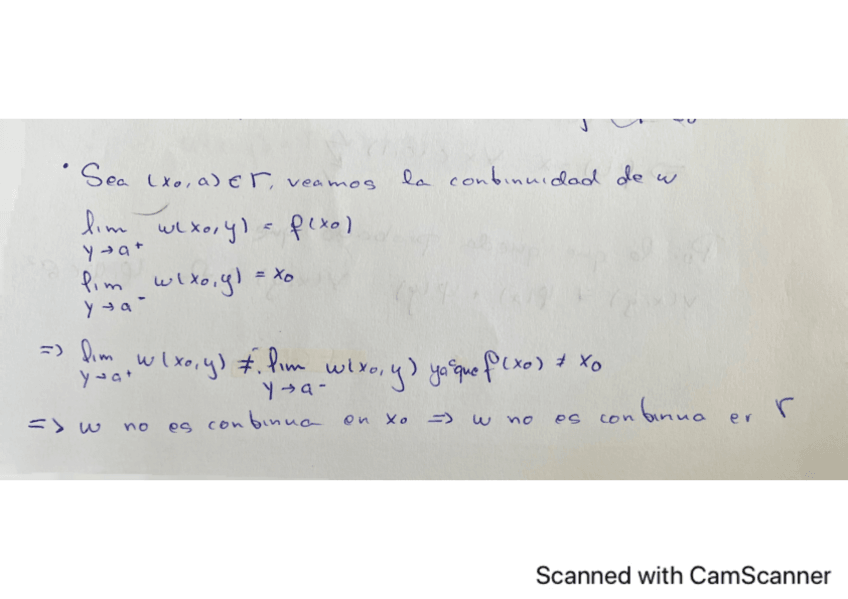 · Sea (x0, a) ∈ Γ, veamos la continuidad de w
lim w(x0, y) = f(x0)
y→a+
lim w(x0, y) = x0
y→a-
=> lim w(x0, y) ≠ lim w(x0, y) ya que f(x0) ≠ x0
y→a+ y→a-
=> w no es continua en x0 => w no es continua en Γ
Scanned with CamScanner